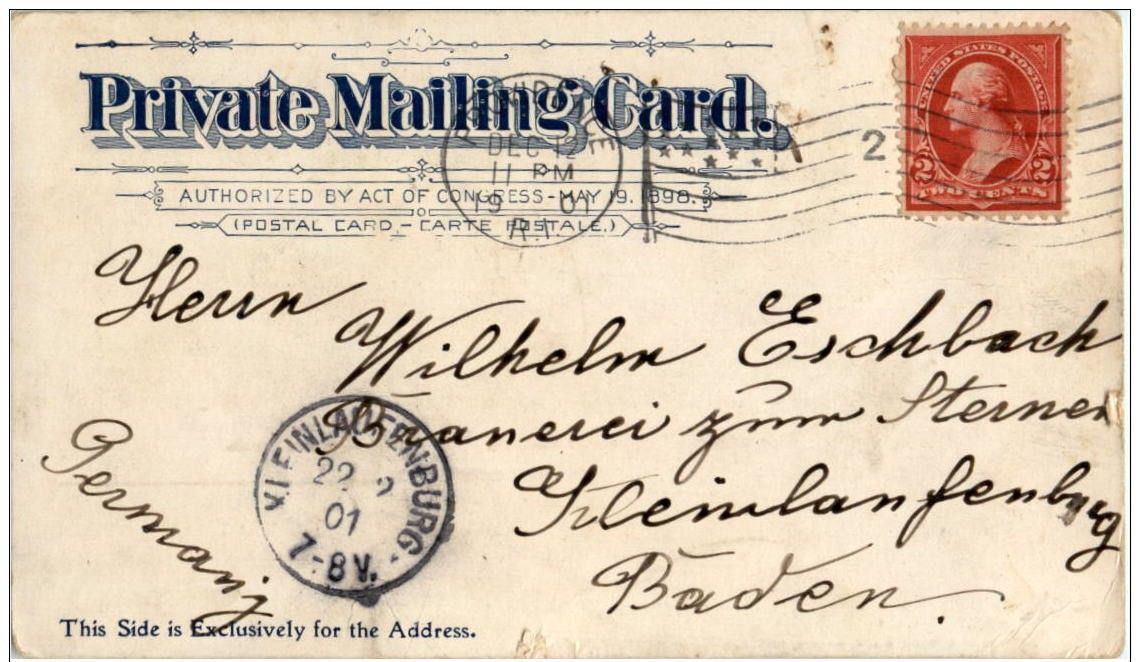 Private Mailing Card.
AUTHORIZED BY ACT OF CONGRESS-MAY 19, 1898.
(POSTAL CARD - CARTE POSTALE.)
DEC 12
11 PM
01
R.I.
2
UNITED STATES POSTAGE
2 2
TWO CENTS
Herrn
Wilhelm Eschbach
Brauerei zum Sternen
Kleinlaufenburg
Baden.
Germany
KLEINLAUFENBURG
22
01
7-8 V.
This Side is Exclusively for the Address.